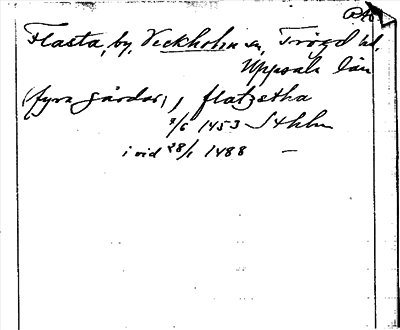 Flasta, by, Veckholm sn, Trögd hd,
Uppsala län
(fyra gårdar), flatzetha
3/6 1453 Sthlm
i vid 28/1 1488 —